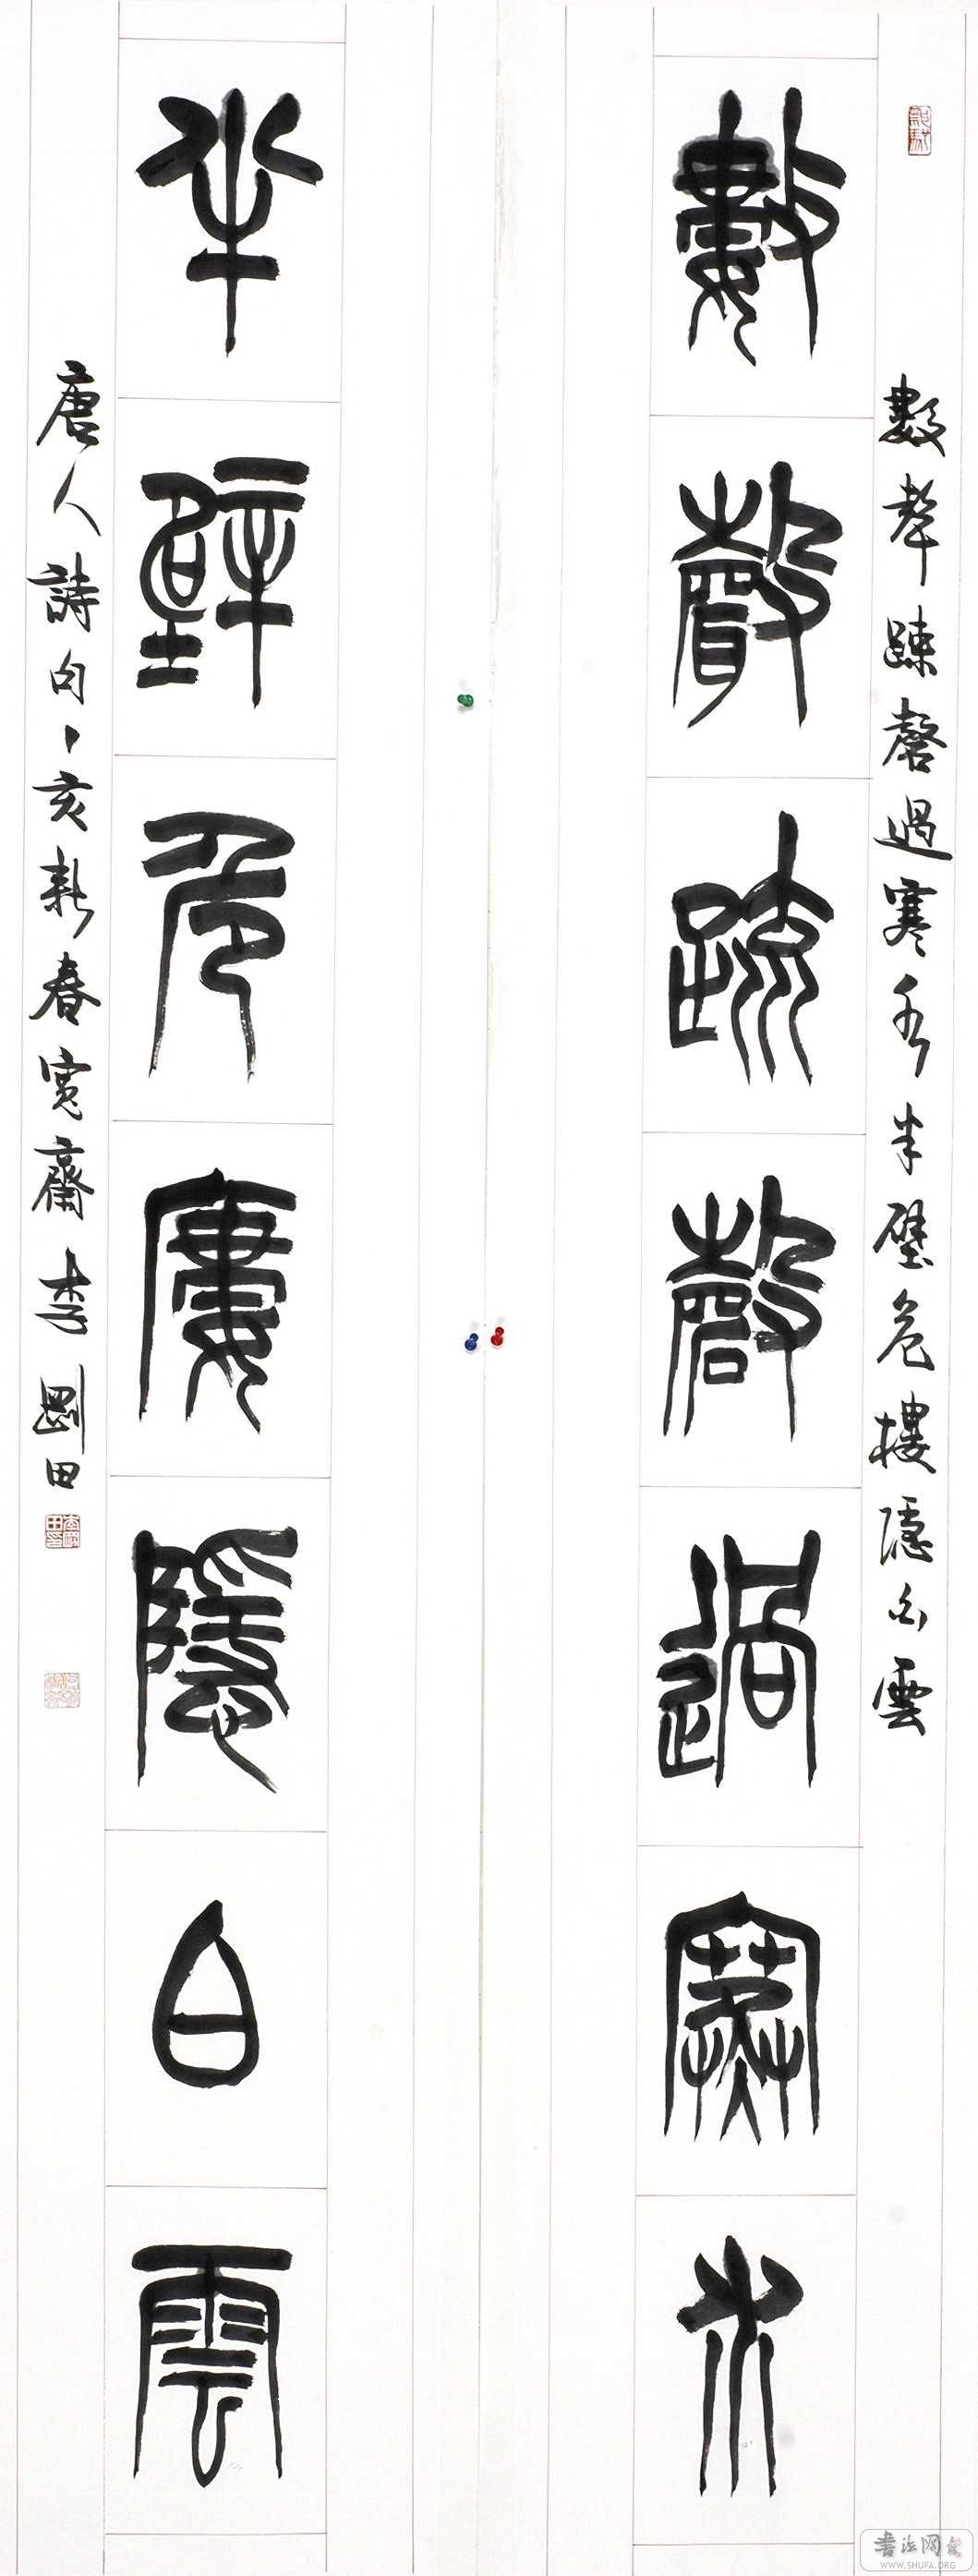 數聲踈磬過寒水半壁危樓隱白雲
數聲疏磬過寒水
半壁危廔隱白雲
唐人詩句丁亥新春寬齋李剛田
書法网
WWW.SHUFA.ORG